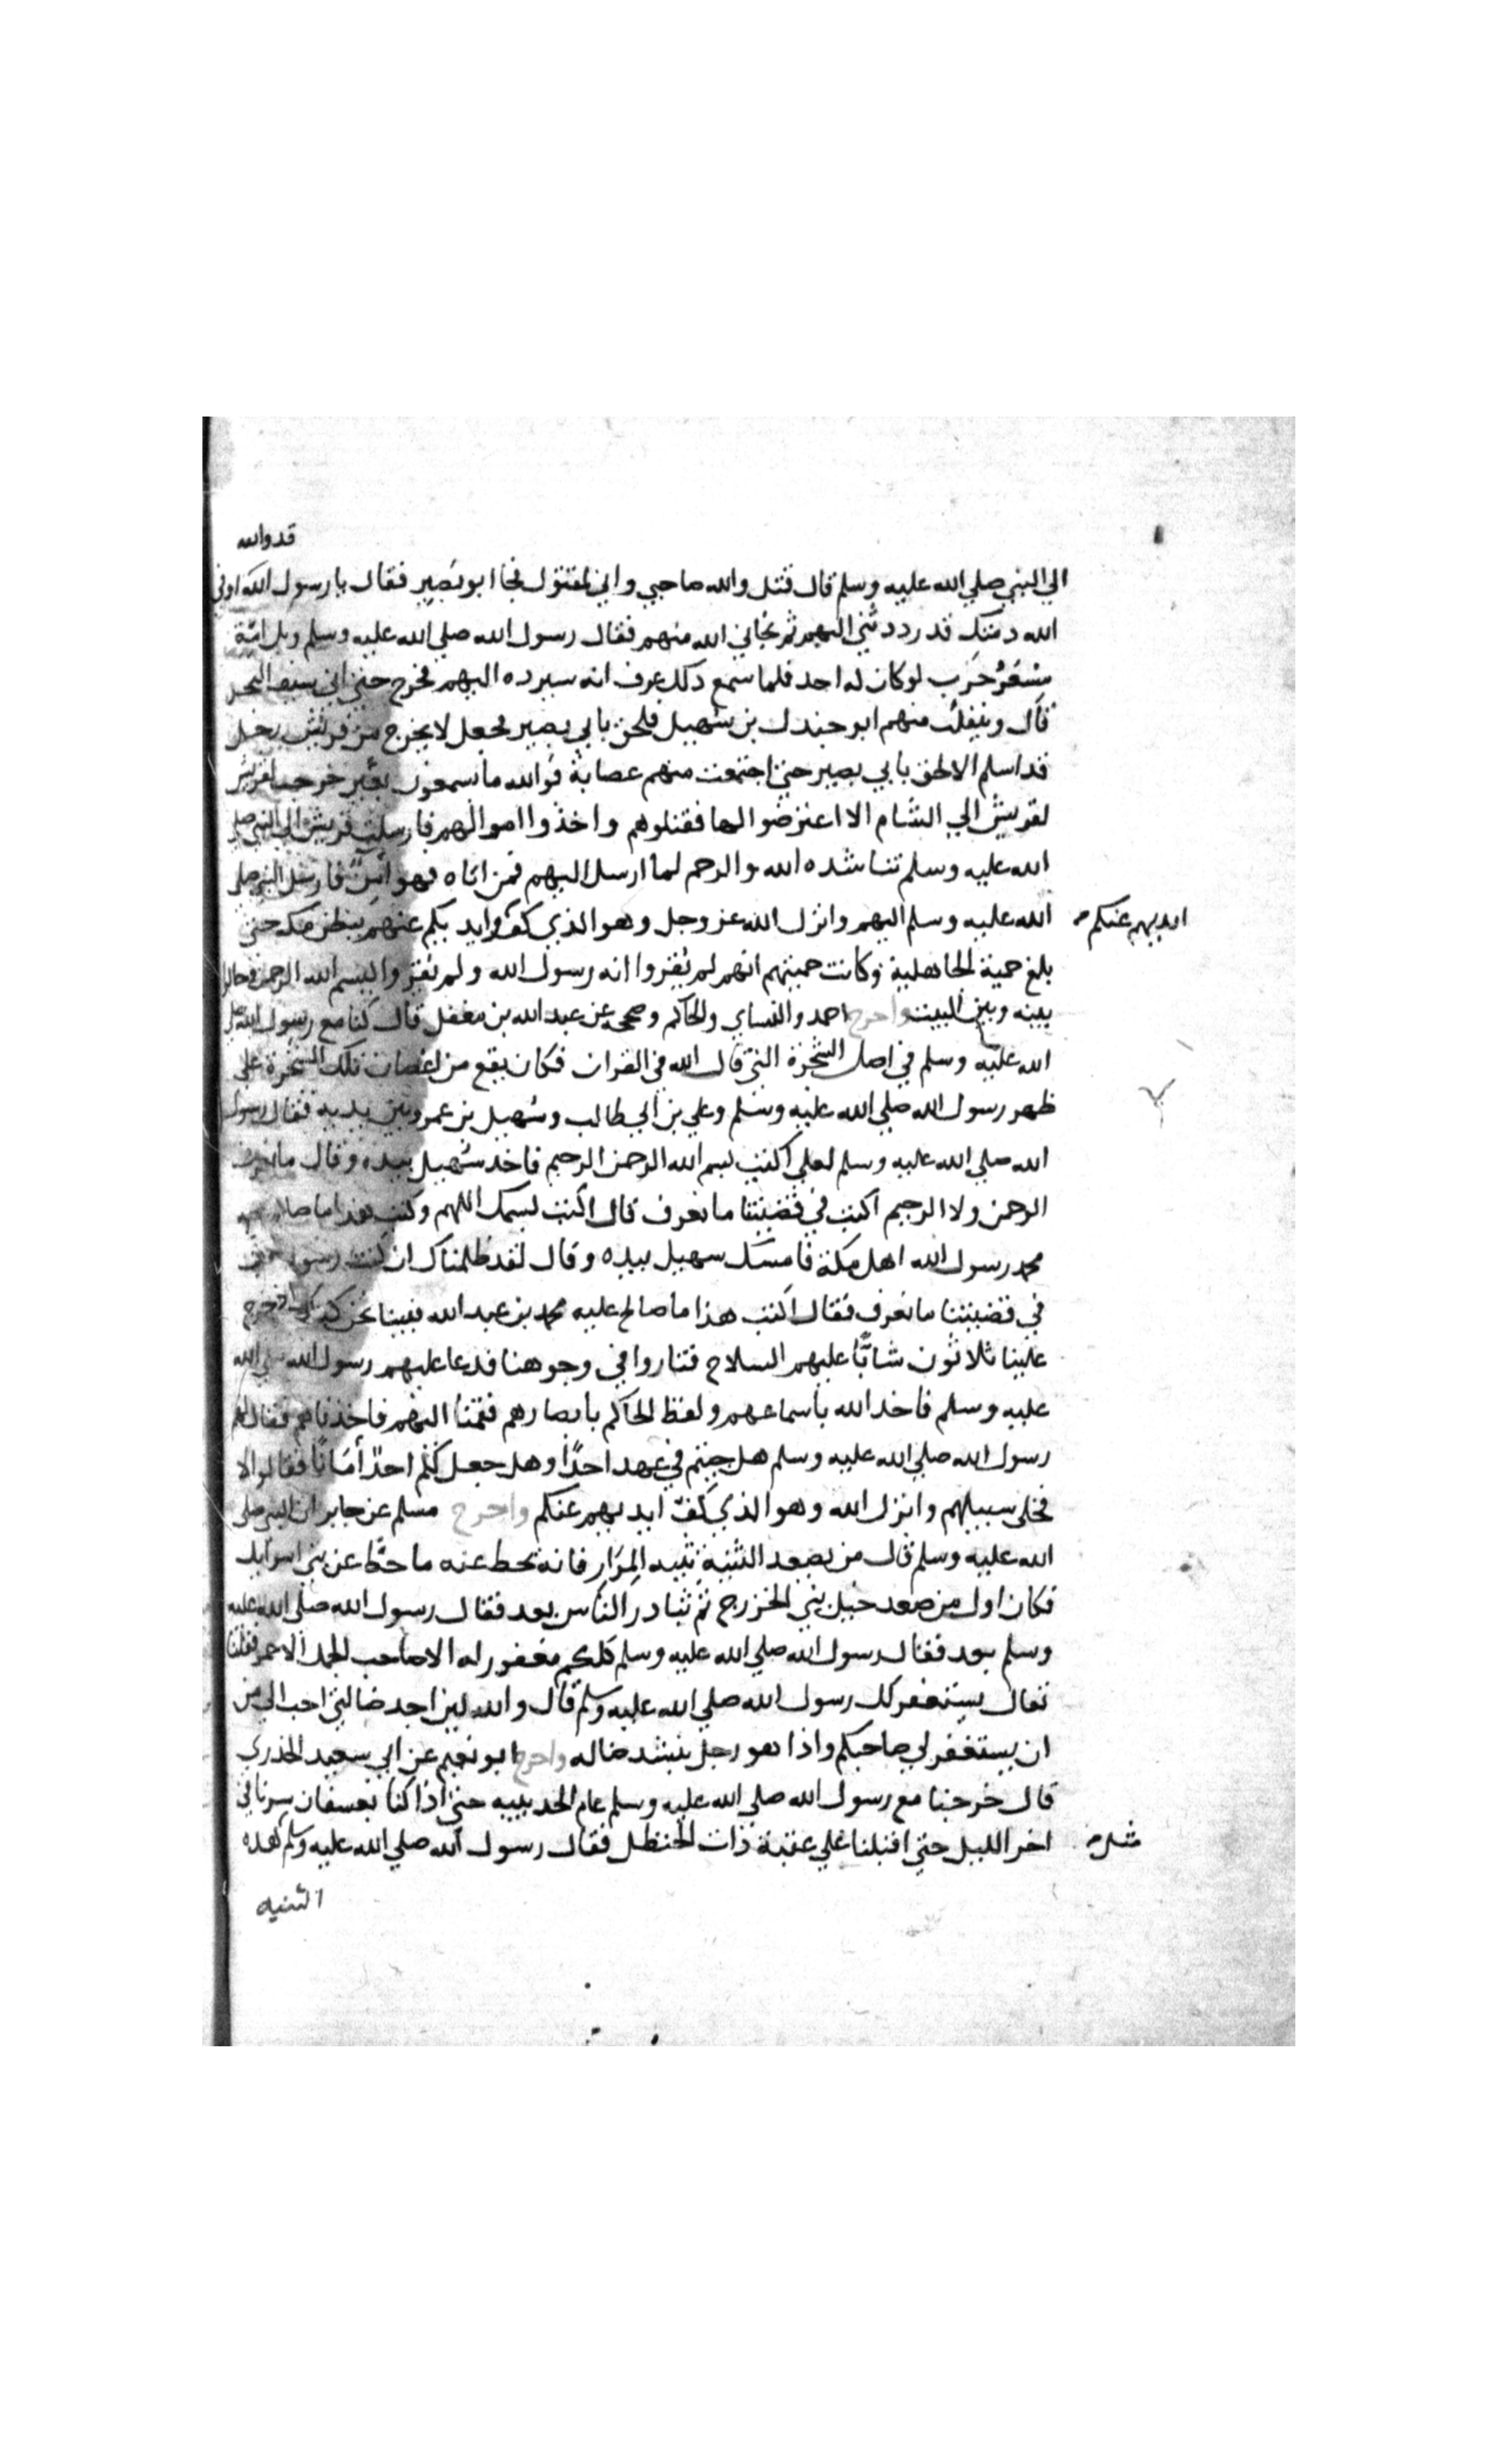 قد والله
الي النبي صلي الله عليه وسلم قال قتل والله صاحبي واني لمقتول فجا ابو بصير فقال يا رسول الله اوفي
الله ذمتك قد رددتني اليهم ثم نجاني الله منهم فقال رسول الله صلي الله عليه وسلم ويل امه
مسعر حرب لو كان له احد فلما سمع ذلك عرف انه سيرده اليهم فخرج حتي اتي سيف البحر
قال وينفلت منهم ابو جندل بن سهيل فلحق بابي بصير فجعل لا يخرج من قريش رجل
قد اسلم الا لحق بابي بصير حتي اجتمعت منهم عصابة فوالله ما يسمعون بعير خرجت لقريش
لقريش الي الشام الا اعترضوا لها فقتلوهم واخذوا اموالهم فارسلت قريش الي النبي صلي
الله عليه وسلم تناشده الله والرحم لما ارسل اليهم فمن اتاه فهو امن فارسل النبي صلي
الله عليه وسلم اليهم وانزل الله عز وجل وهو الذي كف وايديكم عنهم ببطن مكه حتي
ايديهم عنكم
بلغ حمية الجاهلية وكانت حميتهم انهم لم يقروا انه رسول الله ولم يقروا ببسم الله الرحمن وحالوا
بينه وبين البيت واخرج احمد والنساي والحاكم وصححه عن عبد الله بن مغفل قال كنا مع رسول الله صلي
الله عليه وسلم في اصل الشجرة التي قال الله في القران فكان يقع من اغصان تلك الشجرة علي
ظهر رسول الله صلي الله عليه وسلم وعلي بن ابي طالب وسهيل بن عمرو بين يديه فقال رسول
الله صلي الله عليه وسلم لعلي اكتب بسم الله الرحمن الرحيم فاخذ سهيل بيده وقال ما نعرف
الرحمن ولا الرحيم اكتب في قضيتنا ما نعرف قال اكتب بسمك اللهم وكتب هذا ما صالح عليه
محمد رسول الله اهل مكة فامسك سهيل بيده وقال لقد ظلمناك ان كنت رسول اكتب
في قضيتنا ما نعرف فقال اكتب هذا ما صالح عليه محمد بن عبد الله فبينا نحن كذلك اذ خرج
علينا ثلاثون شابا عليهم السلاح فثاروا في وجوهنا فدعا عليهم رسول الله صلي الله
عليه وسلم فاخذ الله باسماعهم ولفظ الحاكم بابصارهم فقمنا اليهم فاخذناهم فقال لهم
رسول الله صلي الله عليه وسلم هل جيتم في عهد احدا وهل جعل لكم احد أمانا فقالوا لا
فخلي سبيلهم وانزل الله وهو الذي كف ايديهم عنكم واخرج مسلم عن جابر ان النبي صلي
الله عليه وسلم قال من يصعد الثنية ثنية المرار فانه يحط عنه ما حط عن بني اسرايل
فكان اول من صعد خيل بني الخزرج ثم تبادر الناس بعد فقال رسول الله صلي الله عليه
وسلم بعد فقال رسول الله صلي الله عليه وسلم كلكم مغفور له الا صاحب الجمل الاحمر فقلنا
تعال يستغفر لك رسول الله صلي الله عليه وسلم قال والله لين اجد ضالتي احب الي من
ان يستغفر لي صاحبكم واذا هو رجل ينشد ضاله واخرج ابو نعيم عن ابي سعيد الخدري
قال خرجنا مع رسول الله صلي الله عليه وسلم عام الحديبيه حتي اذا كنا بعسفان سرنا في
اخر الليل حتي اقبلنا علي عقبة ذات الحنظل فقال رسول الله صلي الله عليه وسلم هذه
مثل
الثنيه